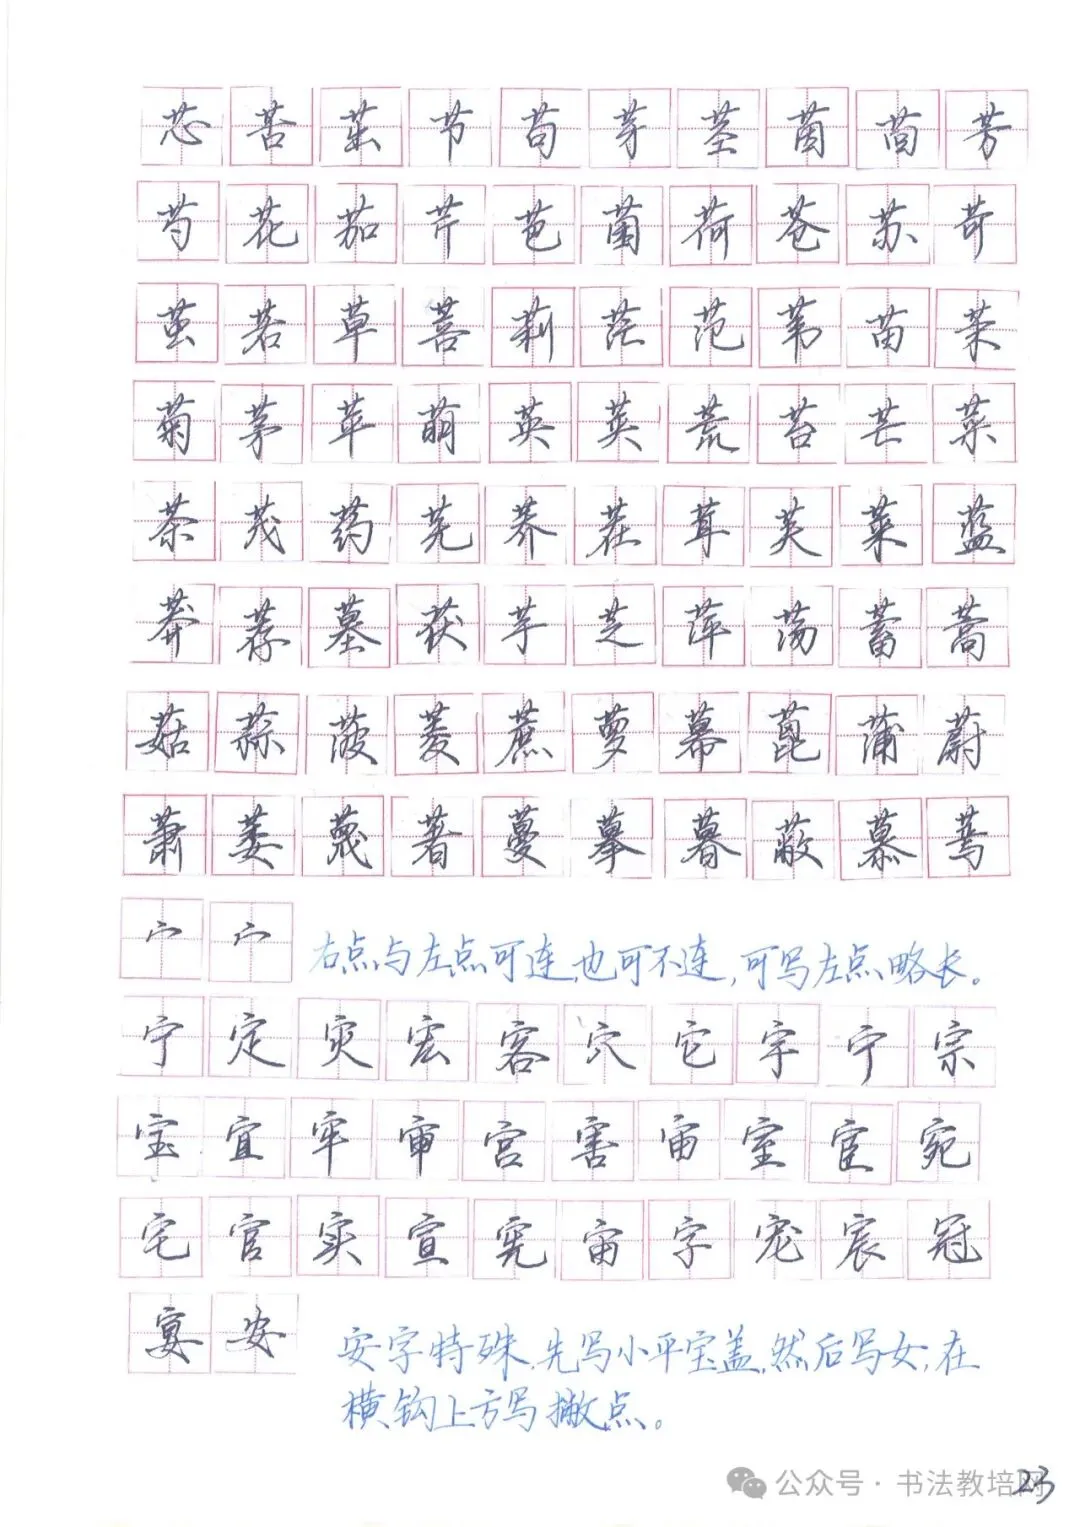 芯 苦 茁 节 苟 芽 茎 茵 茴 芳
芍 花 茄 芹 芭 菌 荷 苍 苏 苛
茧 若 草 莒 莉 茫 范 苇 苗 茉
菊 茅 苹 萌 英 英 荒 苔 芒 菜
茶 茂 药 芜 荞 茬 茸 芙 莱 蓝
莽 荐 墓 茯 芋 芝 萍 荡 蓄 蒿
菇 蒜 菠 菱 蔗 萝 幕 菎 蒲 蔚
萧 萎 蔑 著 蔓 摹 暮 蔽 慕 茑
宀 宀 右点与左点可连,也可不连,可写左点略长。
宁 定 灾 宏 客 穴 它 字 宁 宗
宝 宜 牢 审 宫 害 宙 室 宦 宛
宅 官 实 宣 宪 宙 字 宠 宸 冠
宴 安 安字特殊,先写小平宝盖,然后写女,在
横钩上方写撇点。
公众号·书法教培网
23